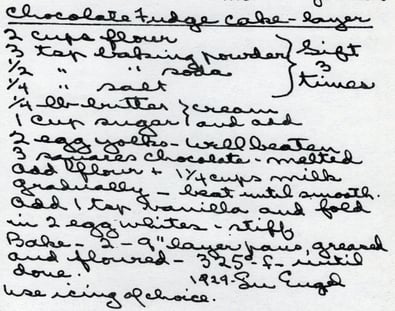 Chocolate Fudge Cake - layer
2 cups flour
3 tsp baking powder } Sift
1/2 " " soda 3
1/4 " salt times
1/4 lb butter } cream
1 cup sugar } and add
2 egg yolks - well beaten
3 squares chocolate - melted
add flour + 1 1/4 cups milk
gradually - beat until smooth.
Add 1 tsp vanilla and fold
in 2 egg whites - stiff
Bake - 2 - 9" layer pans, greased
and floured - 325° f - until
done. 1929 -
use icing of choice.